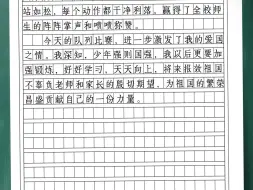 站如松，每个动作都干净利落，赢得了全校师
生的阵阵掌声和啧啧称赞。
今天的队列比赛，进一步激发了我的爱国
之情。我深知，少年强则国强，我以后更要加
强锻炼，好好学习，天天向上，将来报效祖国
不辜负老师和家长的殷切期望，为祖国的繁荣
昌盛贡献自己的一份力量。